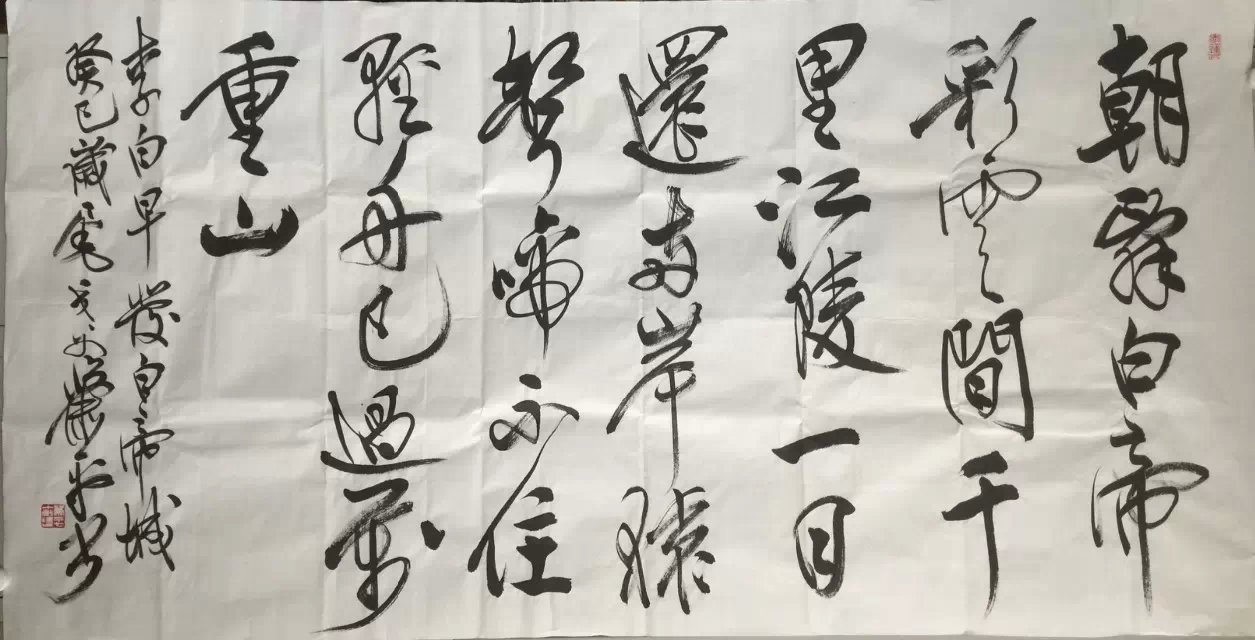 朝辭白帝
彩雲間千
里江陵一日
還兩岸猿
聲啼不住
輕舟已過萬
重山
李白早發白帝城
癸巳歲尾